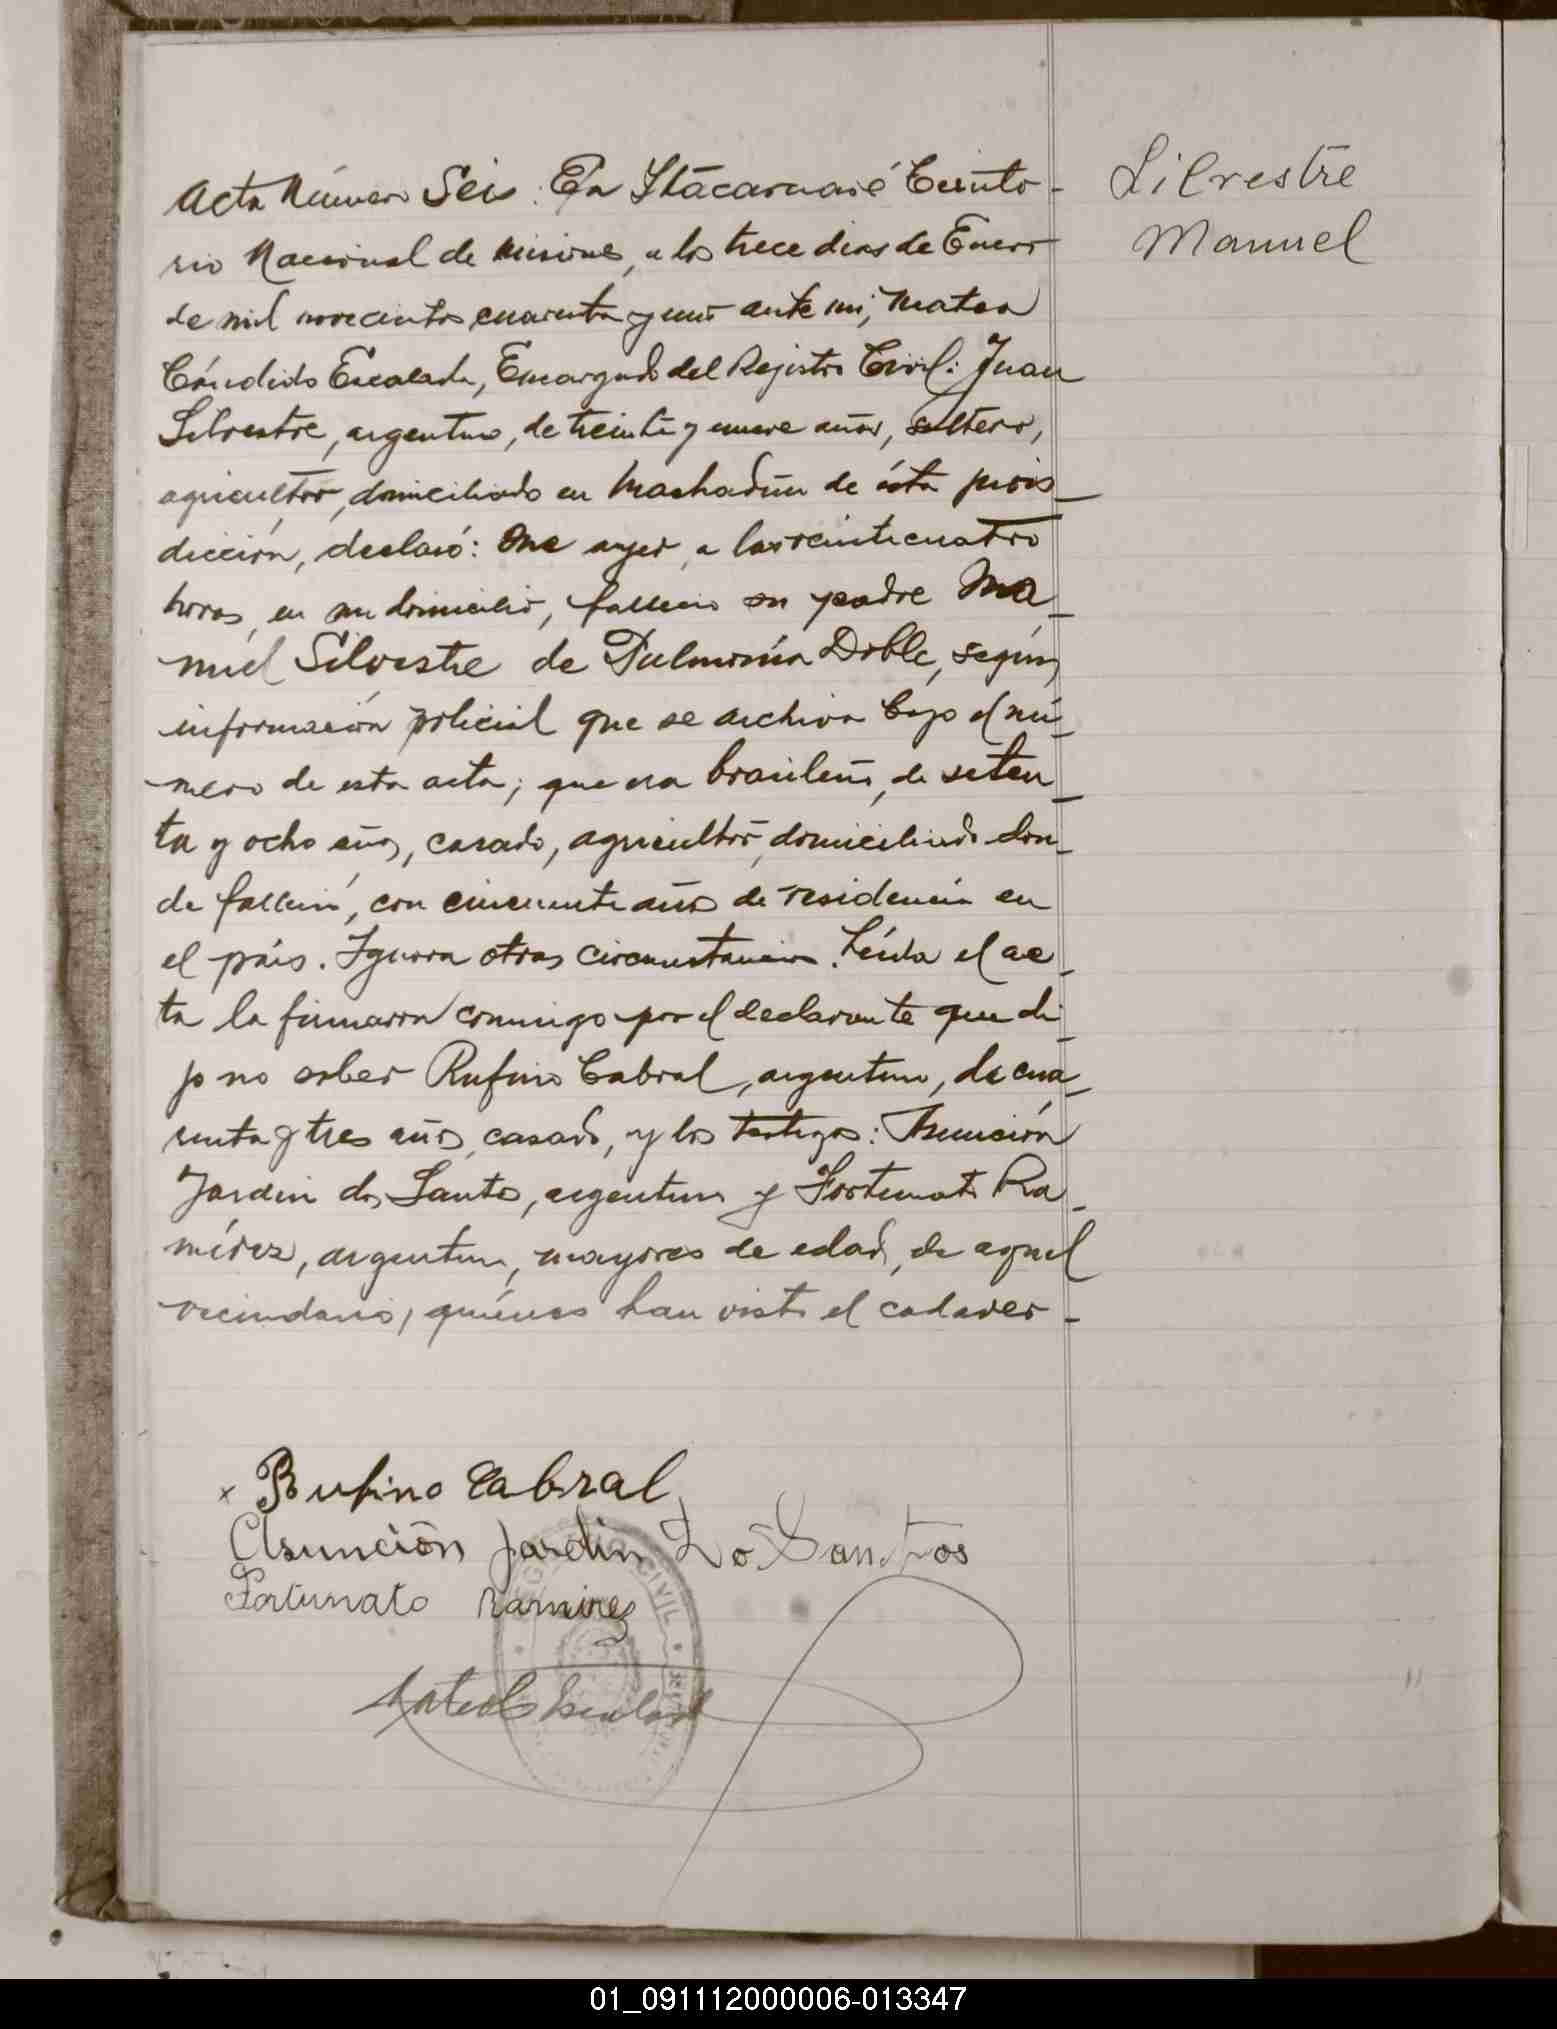 Acta Número Seis: En Itacaruaré Territo-
rio Nacional de Misiones, a los trece dias de Enero
de mil novecientos cuarenta y uno ante mi, Mateo
Cándido Escalada, Encargado del Registro Civil: Juan
Silvestre, argentino, de treinta y nueve años, soltero,
agricultor, domiciliado en Machadiño de ésta juris-
dicción, declaró: Que ayer, a las veinticuatro
horas, en su domicilio, falleció su padre Ma-
nuel Silvestre de Pulmonía Doble, según
información policial que se archiva bajo el nú-
mero de esta acta; que era brasileño, de seten-
ta y ocho años, casado, agricultor, domiciliado don-
de falleció, con cincuenta años de residencia en
el país. Ignora otras circunstancias. Leída el ac-
ta la firmaron conmigo por el declarante que di-
jo no saber Rufino Cabral, argentino, de cua-
renta y tres años, casado, y los testigos: Asunción
Jardin dos Santos, argentino y Fortunato Ra-
mírez, argentino, mayores de edad, de aquel
vecindario, quiénes han visto el cadaver-
Silvestre
Manuel
x Rufino Cabral
Asunción Jardin Do Santos
Fortunato Ramirez
Mateo C Escalada
REGISTRO CIVIL
01_091112000006-013347